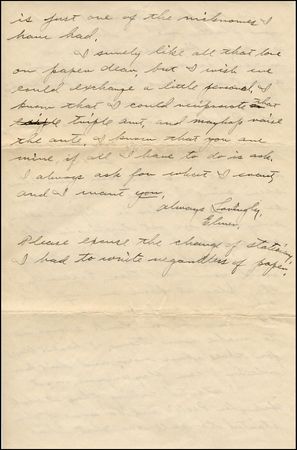 is just one of the nicknames I
have had.
I surely like all that love
on paper dear, but I wish we
could exchange a little personal, I
know that I could reciprocate that
triple amt, and mayhap raise
the ante. I know that you are
mine, if all I have to do is ask.
I always ask for what I want,
and I want you.
Always Lovingly,
Elmer.
Please excuse the change of stationary,
I had to write regardless of paper.